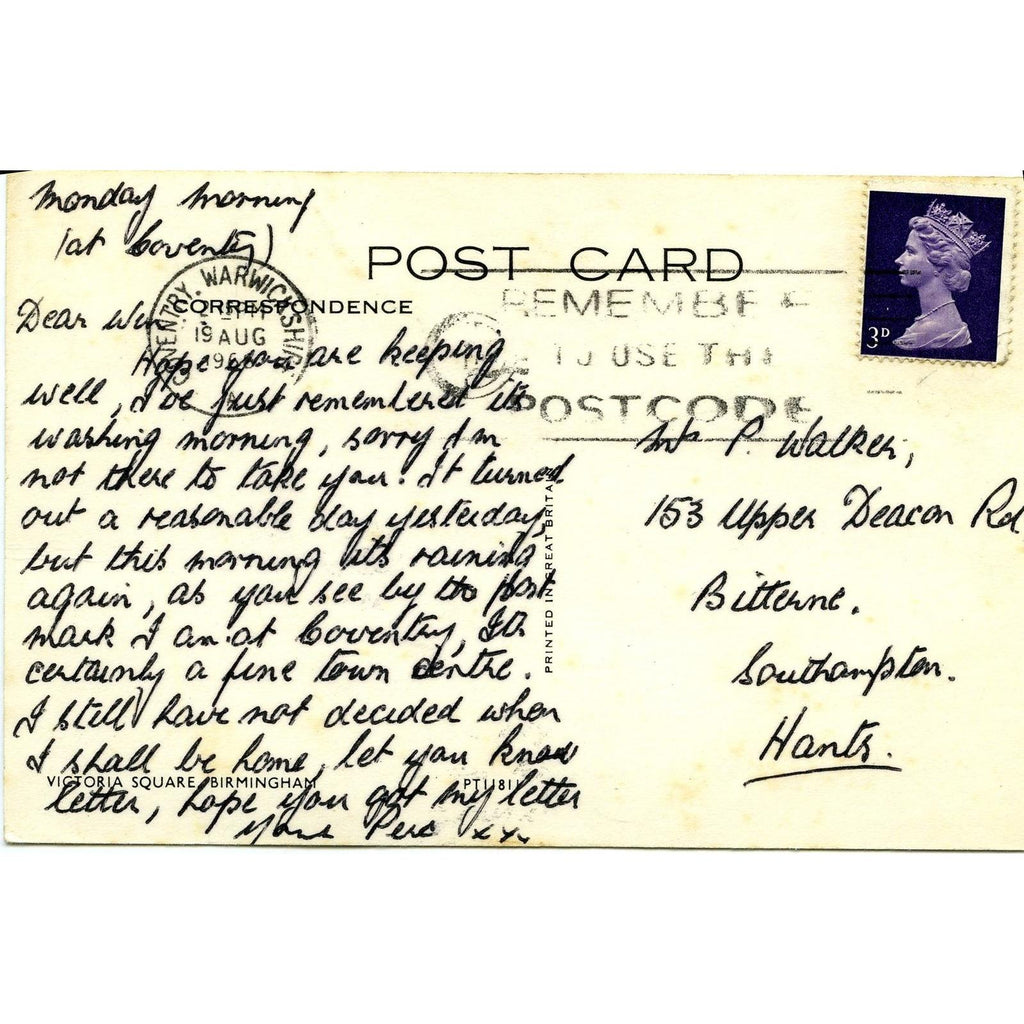 Monday Morning
(at Coventry)
POST CARD
CORRESPONDENCE
COVENTRY. WARWICKSHIRE
19 AUG
1968
REMEMBER
TO USE THE
POSTCODE
3D
Dear Win
Hope you are keeping
well, I've just remembered its
washing morning, sorry I'm
not there to take you. It turned
out a reasonable day yesterday,
but this morning its raining
again, as you see by the post
mark I am at Coventry, Its
certainly a fine town centre.
I still have not decided when
I shall be home, let you know
letter, hope you got my letter
yours Perc xx
VICTORIA SQUARE, BIRMINGHAM
PT11811
PRINTED IN GREAT BRITAIN
Mrs P. Walker,
153 Upper Deacon Rd
Bitterne.
Southampton.
Hants.